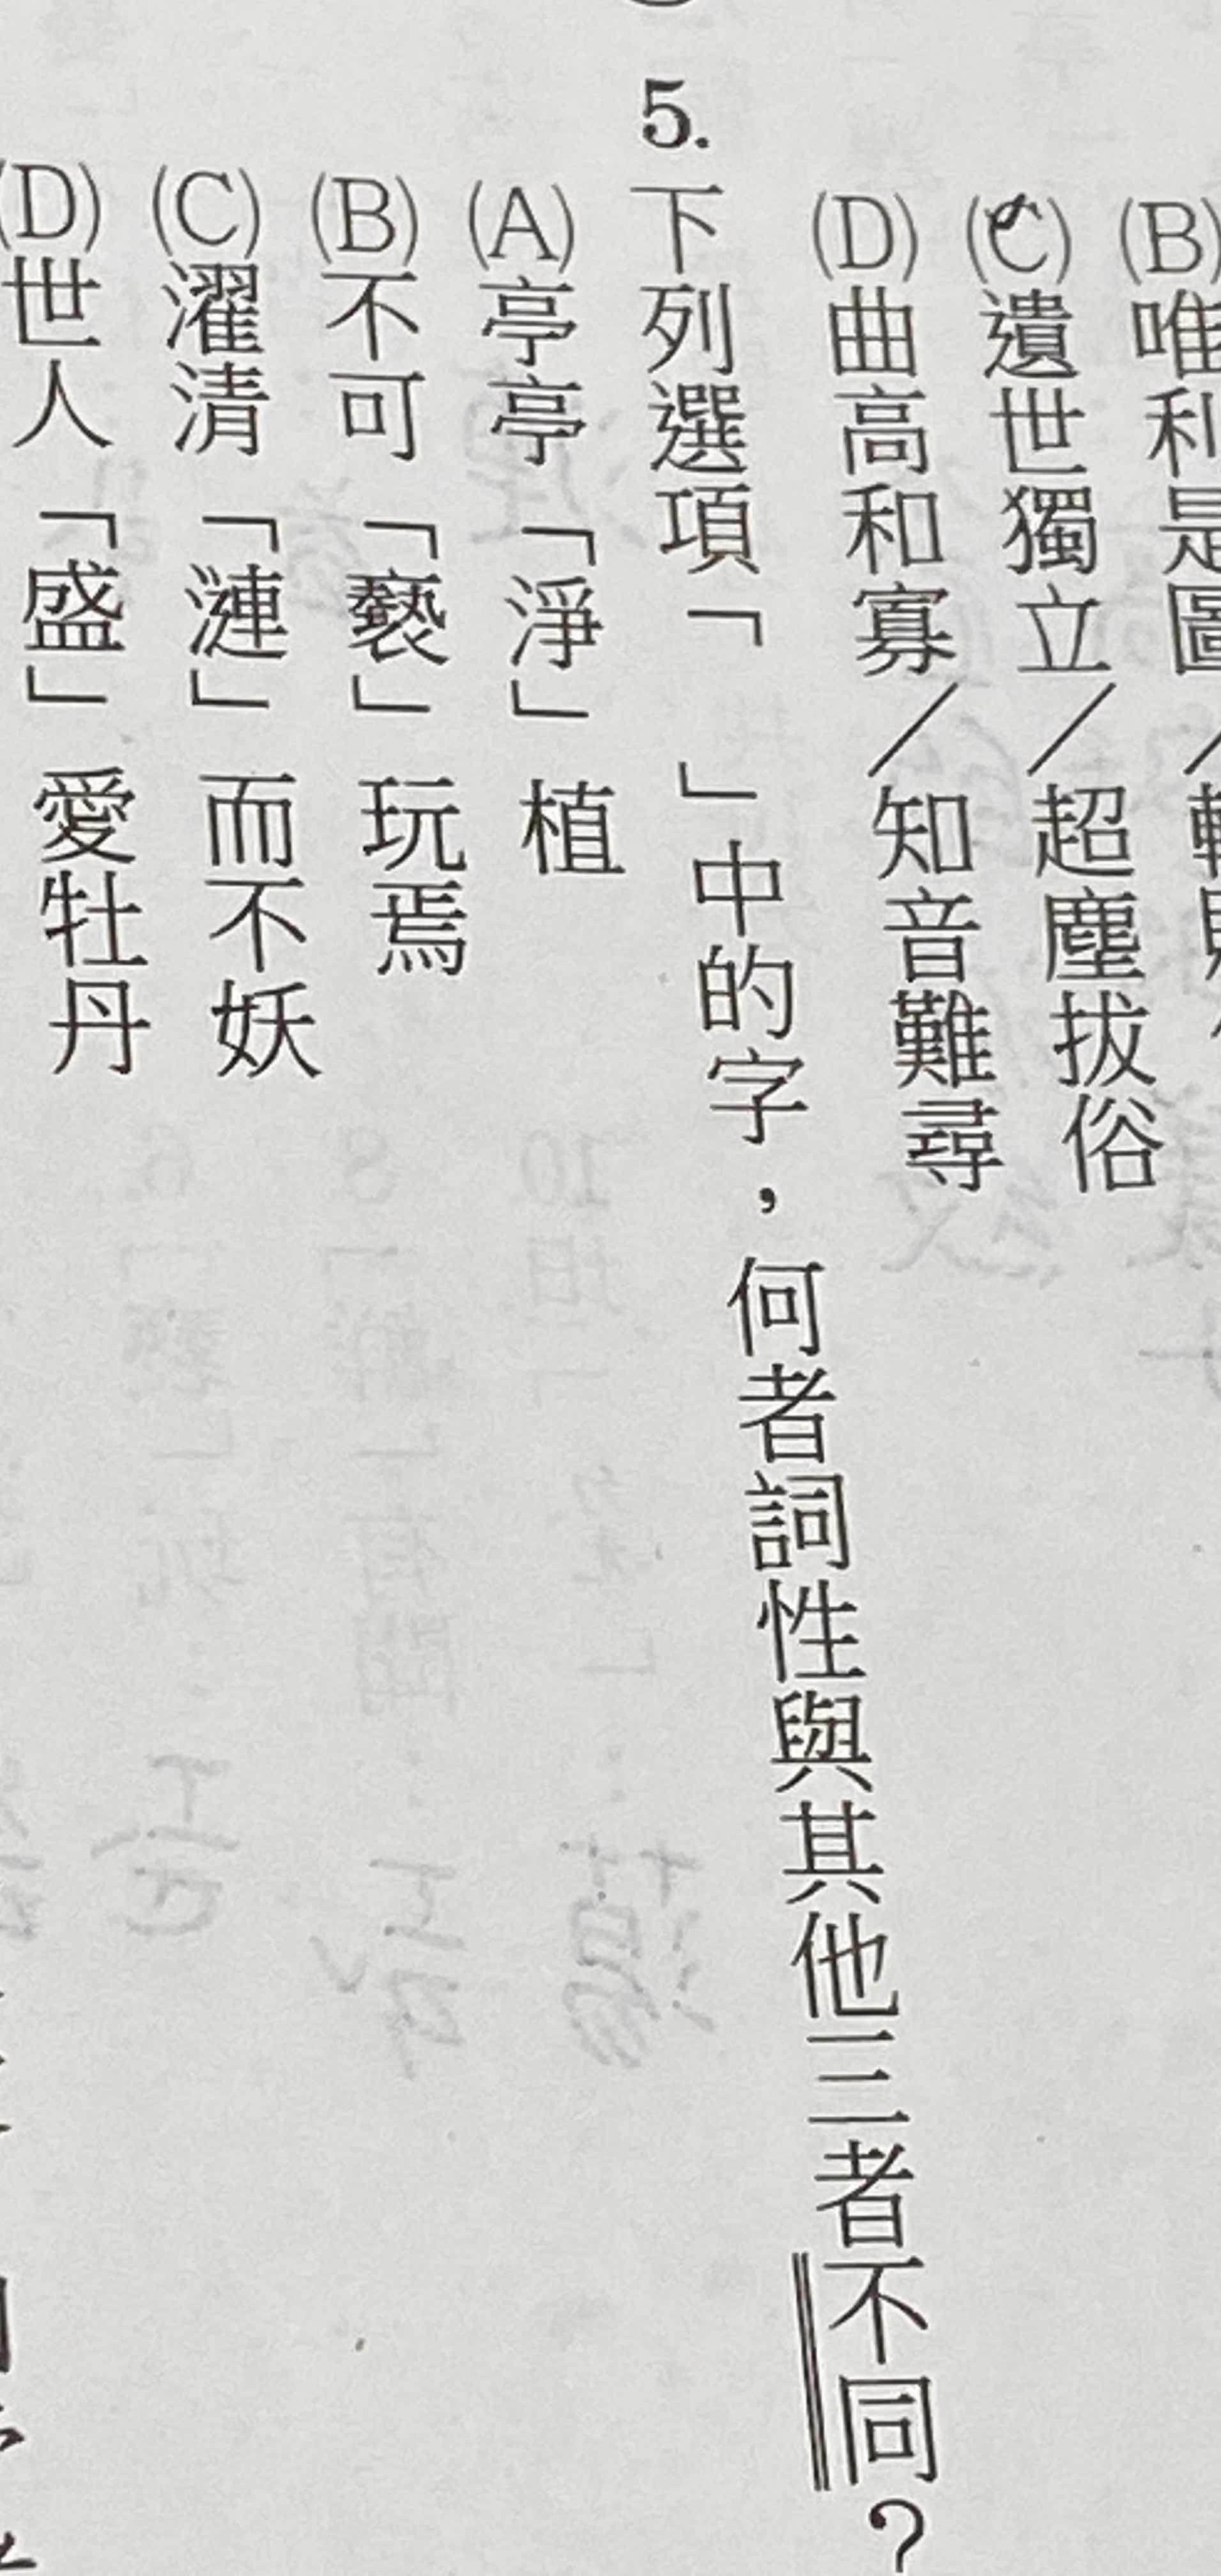 (B)唯利是圖
(C)遺世獨立／超塵拔俗
(D)曲高和寡／知音難尋
5.下列選項「　」中的字，何者詞性與其他三者不同？
(A)亭亭「淨」植
(B)不可「褻」玩焉
(C)濯清「漣」而不妖
(D)世人「盛」愛牡丹